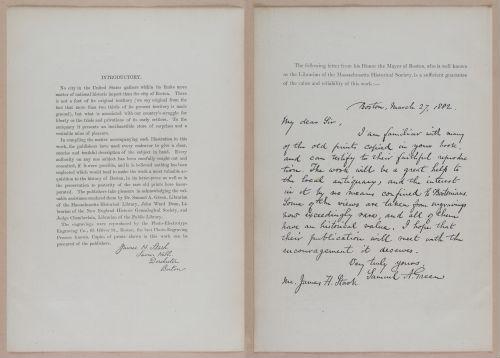 INTRODUCTORY.
No city in the United States gathers within its limits more
matter of national historic import than the city of Boston. There
is not a foot of its original territory (we say original from the
fact that more than two thirds of its present territory is made
ground), but what is associated with our country's struggle for
liberty or the trials and privations of its early settlers. To the
antiquary it presents an inexhaustible store of surprises and a
veritable mine of pleasure.
In compiling the matter accompanying each illustration to this
work, the publishers have used every endeavor to give a clear,
concise and truthful description of the subject in hand. Every
authority on any one subject has been carefully sought out and
consulted, if it were possible, and it is believed nothing has been
neglected which would tend to make the work a most valuable ac-
quisition to the history of Boston, in its letter-press as well as in
the presentation to posterity of the rare old prints here incor-
porated. The publishers take pleasure in acknowledging the val-
uable assistance rendered them by Dr. Samuel A. Green, Librarian
of the Massachusetts Historical Library, John Ward Dean, Li-
brarian of the New England Historic Genealogical Society, and
Judge Chamberlain, Librarian of the Public Library.
The engravings were reproduced by the Photo-Electrotype
Engraving Co., 63 Oliver St., Boston, the best Photo-Engraving
Process known. Copies of prints shown in this work can be
procured of the publishers.
James H. Stark
Savin Hill
Dorchester
Boston
The following letter from his Honor the Mayor of Boston, who is well known
as the Librarian of the Massachusetts Historical Society, is a sufficient guarantee
of the value and reliability of this work:—
Boston, March 27, 1882
My dear Sir,
I am familiar with many
of the old prints copied in your book,
and can testify to their faithful reproduc-
tion. The work will be a great help to
the local antiquary, and the interest
in it by no means confined to Bostonians.
Some of the views are taken from engravings
now exceedingly rare, and all of them
have an historical value. I hope that
their publication will meet with the
encouragement it deserves.
Very truly yours,
Samuel A. Green
Mr. James H. Stark